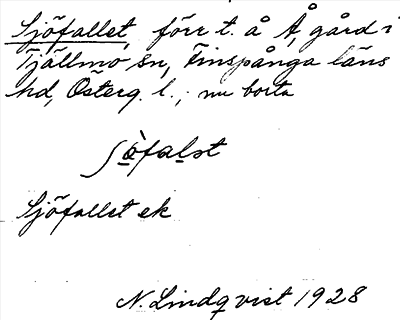 Sjöfallet, förr t. å Å, gård i
Tjällmo sn, Finspånga läns
hd, Österg. l.; nu borta
ʃö̀falst
Sjöfallet ek
N. Lindqvist 1928